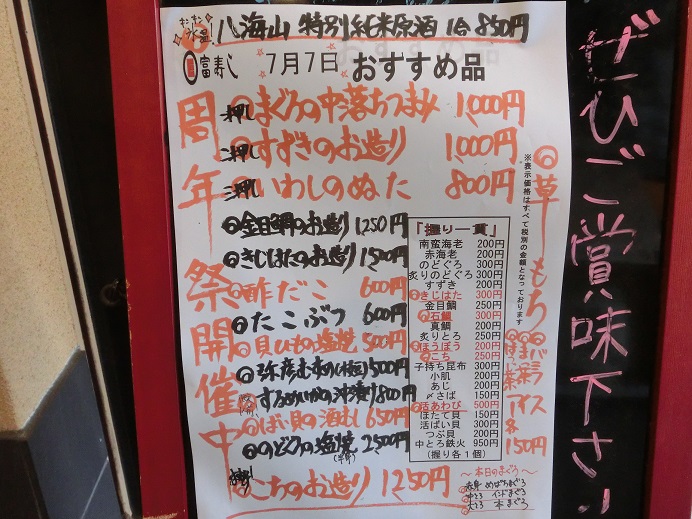 キンキン
氷温!
八海山 特別純米原酒 1合 850円
富寿し 7月7日 おすすめ品
周年祭開催中
一押し まぐろの中落ちつまみ 1,000円
二押し すずきのお造り 1,000円
三押し いわしのぬた 800円
金目鯛のお造り 1250円
きじはたのお造り 1500円
酢だこ 600円
たこぶつ 600円
貝ひもの塩焼 500円
弥彦むすめ(枝豆) 500円
するめいかの沖漬け 800円
ばい貝の酒むし 650円
のどぐろの塩焼 2500円
(半身)
こちのお造り 1250円
「握り一貫」
南蛮海老 200円
赤海老 200円
のどぐろ 300円
炙りのどぐろ 300円
すずき 200円
きじはた 300円
金目鯛 250円
石鯛 300円
真鯛 200円
炙りとろ 250円
ほうぼう 200円
こち 250円
子持ち昆布 300円
小肌 200円
あじ 200円
〆さば 150円
活あわび 500円
ほたて貝 150円
活ばい貝 300円
つぶ貝 200円
中とろ鉄火 950円
(握り各1個)
※表示価格はすべて税別の金額となっております
草もち
バニラ
抹茶
アイス
各
150円
~本日のまぐろ~
赤身 めばちまぐろ
中とろ インドまぐろ
大とろ 本まぐろ
ぜひご賞味下さい